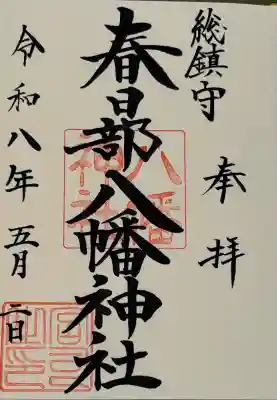 奉拝
総鎮守
春日部八幡神社
八幡神社
令和八年五月二日